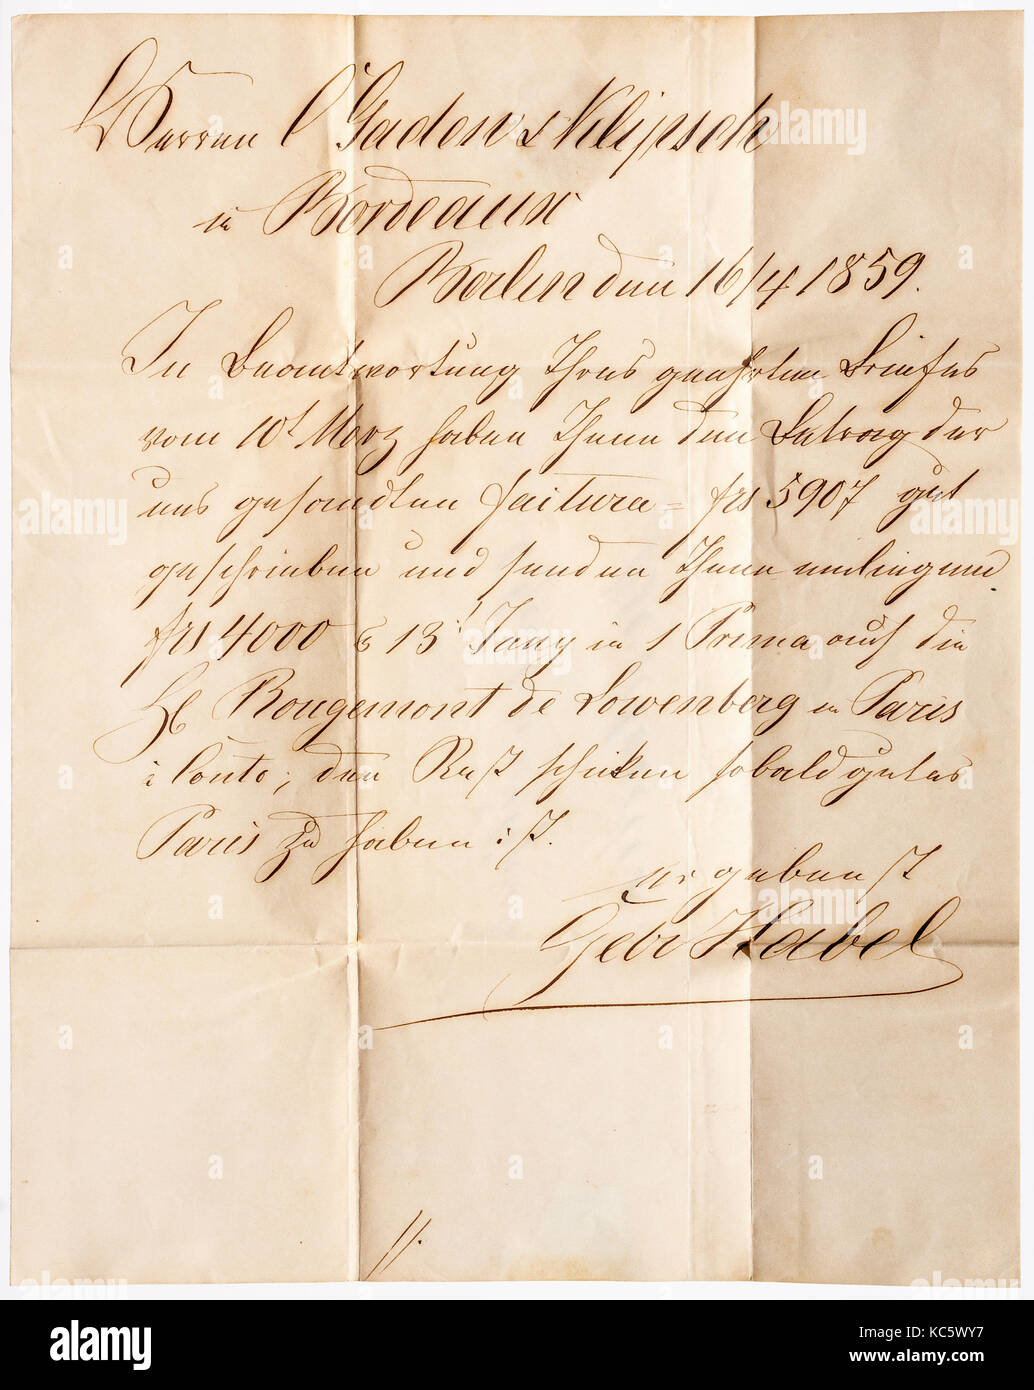 Herren Gaden & Klipsch
in Bordeaux
Berlin den 16/4 1859.
In Beantwortung Ihres geehrten Briefes
vom 10t März haben Ihnen den Betrag der
uns gesandten factura = frs 5907 gut
geschrieben und senden Ihnen einliegend
frs 4000 13 Juny in 1 Prima auf die
Rougemont de Lowenberg in Paris
à Conto, den Rest schicken sobald gutes
Paris zu haben ist.
ergebenst
Gebr Habel
alamy
Image ID: KC5WY7
www.alamy.com